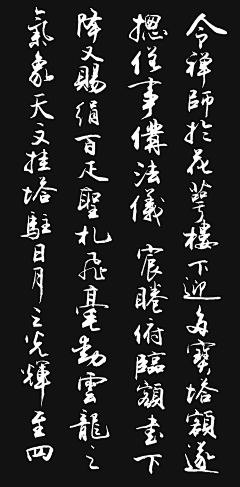 令禪師於花萼樓下迎多寶塔額遂
揔僧事備法儀宸睠俯臨額書下
降又賜絹百疋聖札飛毫動雲龍之
氣象天文挂塔駐日月之光輝至四